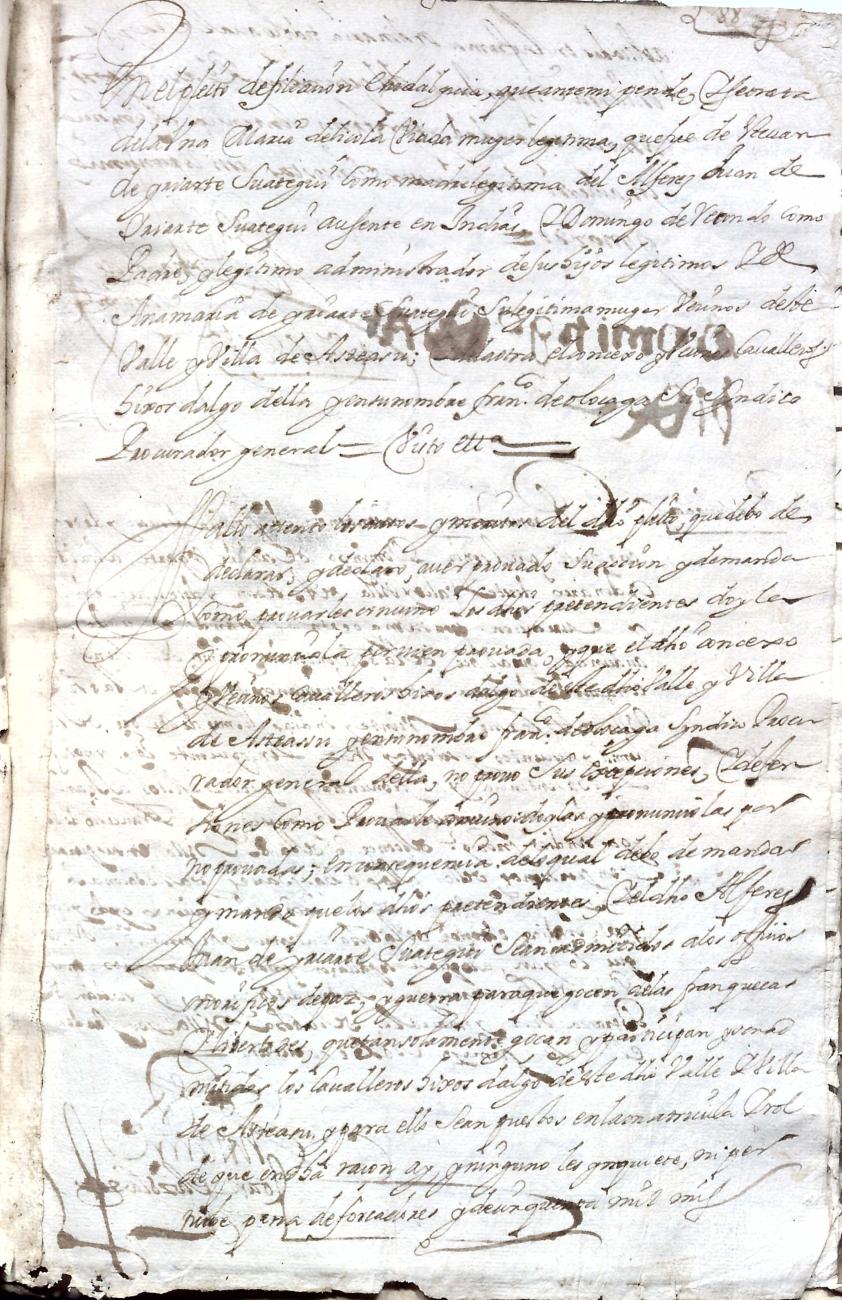 88
En el pleito de filiación E hidalguia, que ante mi pende, E se trata
de la Una Maria de licola Viuda muger legitima, que fue de Estevan
de yriarte Suategui como madre legitima del Alferez Juan de
Yriarte Suategui ausente en Indias, E Domingo de como
Padre, y legitimo administrador de sus hijos legitimos E de
Ana maria de yriarte Suategui Su legitima muger Vecinos deste
Valle y Villa de Asteasu; E de la otra el concejo y Vecinos Cavalleros
hixos dalgo della y en su nombre franco. de olocaga Su Syndico
Procurador general = Visto etta
fallo attento los autos y meritos del dho pleito, que debo de
declarar, y declaro, aver provado Su accion y demanda
como provarles convino Los dhos pretendientes doyla
y pronunciola por bien provada, y que el dho concexo
y Vecinos cavalleros hixos dalgo de este dho Valle y Villa
de Asteassu y en su nombre franco. de olocaga Syndico Procu
rador general della, no provo Sus Excepciones, E defen
siones como Provarle convino doylas y pronunciolas por
no provadas; En consequencia de lo qual debo de mandar
y mando que los dhos pretendientes, E el dho Alferez
Juan de yriarte Suategui Sean admitidos a los officios
honorificos de paz, y guerra para que gocen de las franquecas
E libertades, que tan solamente gocan y participan y son ad
mitidos los Cavalleros hixos dalgo de este dho Valle E Villa
de Asteasu, y para ello Sean puestos en la matricula E rol
de que en dha racon ay, y ninguno les ynquiete, ni per
turbe pena de forcadores y de cinquenta mil mrs